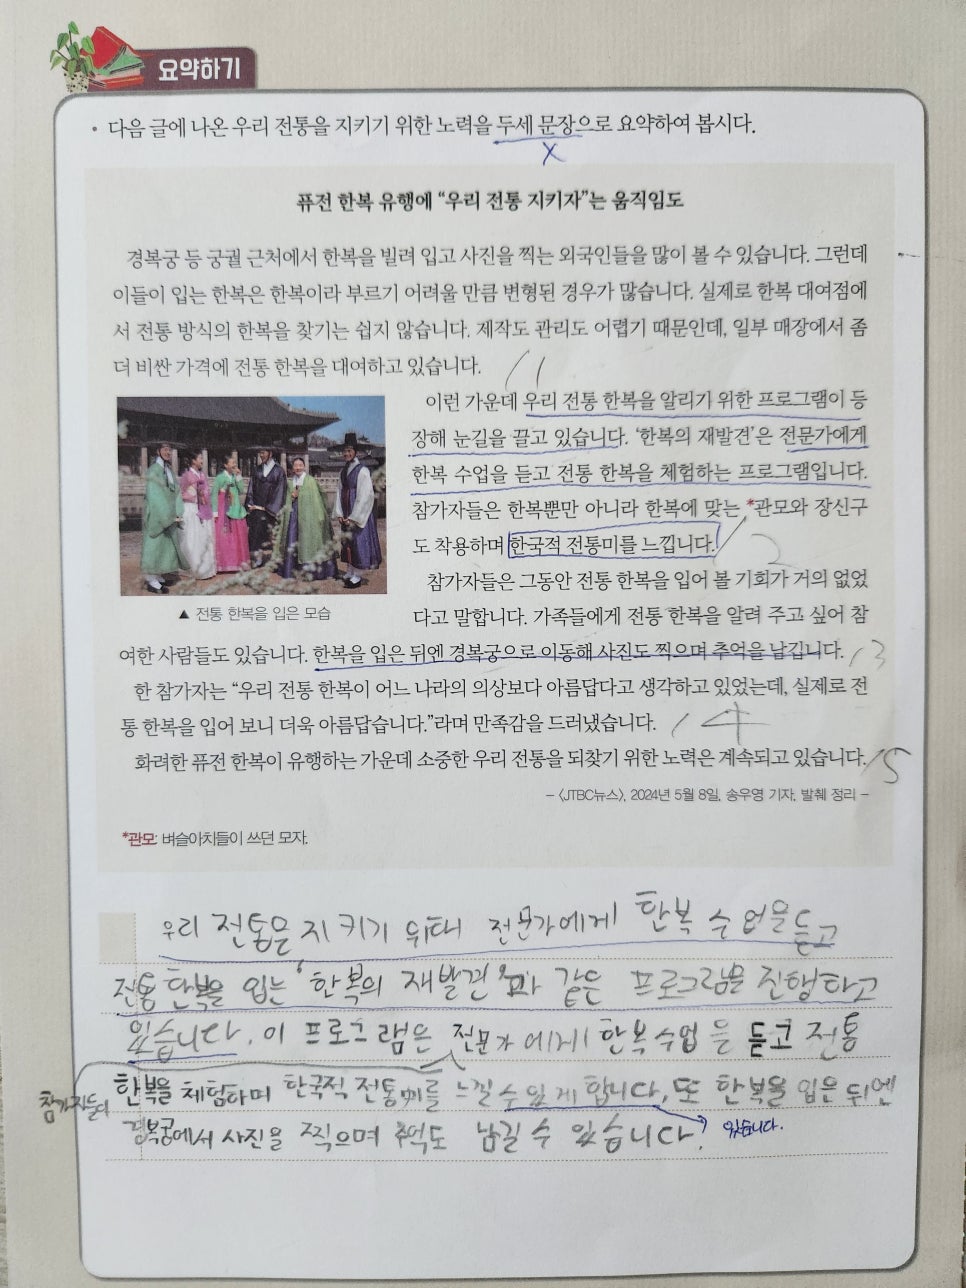 요약하기
• 다음 글에 나온 우리 전통을 지키기 위한 노력을 두세 문장으로 요약하여 봅시다.
X
퓨전 한복 유행에 “우리 전통 지키자”는 움직임도
경복궁 등 궁궐 근처에서 한복을 빌려 입고 사진을 찍는 외국인들을 많이 볼 수 있습니다. 그런데
이들이 입는 한복은 한복이라 부르기 어려울 만큼 변형된 경우가 많습니다. 실제로 한복 대여점에
서 전통 방식의 한복을 찾기는 쉽지 않습니다. 제작도 관리도 어렵기 때문인데, 일부 매장에서 좀
더 비싼 가격에 전통 한복을 대여하고 있습니다. /1
이런 가운데 우리 전통 한복을 알리기 위한 프로그램이 등
장해 눈길을 끌고 있습니다. ‘한복의 재발견’은 전문가에게
한복 수업을 듣고 전통 한복을 체험하는 프로그램입니다.
참가자들은 한복뿐만 아니라 한복에 맞는 *관모와 장신구
도 착용하며 한국적 전통미를 느낍니다. /2
▲ 전통 한복을 입은 모습
참가자들은 그동안 전통 한복을 입어 볼 기회가 거의 없었
다고 말합니다. 가족들에게 전통 한복을 알려 주고 싶어 참
여한 사람들도 있습니다. 한복을 입은 뒤엔 경복궁으로 이동해 사진도 찍으며 추억을 남깁니다. /3
한 참가자는 “우리 전통 한복이 어느 나라의 의상보다 아름답다고 생각하고 있었는데, 실제로 전
통 한복을 입어 보니 더욱 아름답습니다.”라며 만족감을 드러냈습니다. /4
화려한 퓨전 한복이 유행하는 가운데 소중한 우리 전통을 되찾기 위한 노력은 계속되고 있습니다. /5
– 〈JTBC뉴스〉, 2024년 5월 8일, 송우영 기자, 발췌 정리 –
*관모: 벼슬아치들이 쓰던 모자.
우리 전통을 지키기 위해 전문가에게 한복 수업을 듣고
전통 한복을 입는 ‘한복의 재발견’과 같은 프로그램을 진행하고
있습니다. 이 프로그램은 전문가에게 한복수업을 듣고 전통
참가자들이 한복을 체험하며 한국적 전통미를 느낄 수 있게 합니다. 또 한복을 입은 뒤엔
경복궁에서 사진을 찍으며 추억도 남길 수 있습니다. 있습니다.